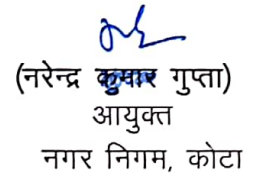 (नरेन्द्र कुमार गुप्ता)
आयुक्त
नगर निगम, कोटा